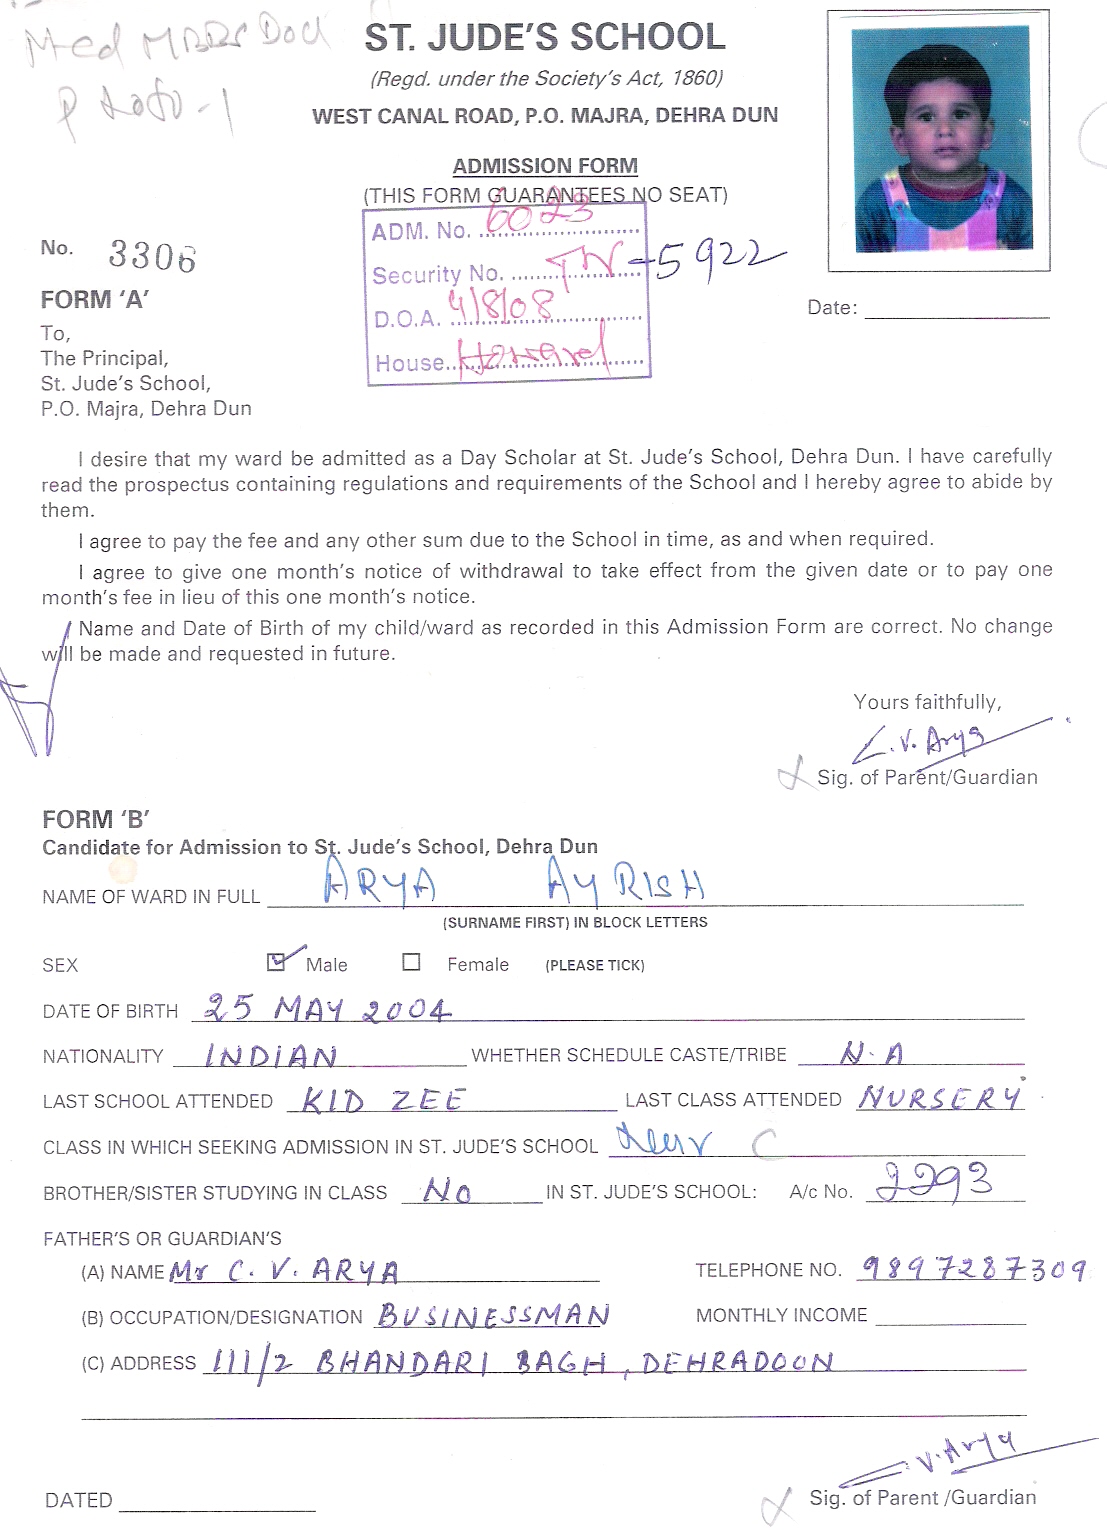 Med MBBS Doct
Photo-1
ST. JUDE'S SCHOOL
(Regd. under the Society's Act, 1860)
WEST CANAL ROAD, P.O. MAJRA, DEHRA DUN
ADMISSION FORM
(THIS FORM GUARANTEES NO SEAT)
ADM. No. 6023
No. 3306
Security No. TN-5922
FORM 'A'
D.O.A. 4/8/08
Date:
To,
The Principal,
House
St. Jude's School,
P.O. Majra, Dehra Dun
I desire that my ward be admitted as a Day Scholar at St. Jude's School, Dehra Dun. I have carefully
read the prospectus containing regulations and requirements of the School and I hereby agree to abide by
them.
I agree to pay the fee and any other sum due to the School in time, as and when required.
I agree to give one month's notice of withdrawal to take effect from the given date or to pay one
month's fee in lieu of this one month's notice.
Name and Date of Birth of my child/ward as recorded in this Admission Form are correct. No change
will be made and requested in future.
Yours faithfully,
C.V. Arya
Sig. of Parent/Guardian
FORM 'B'
Candidate for Admission to St. Jude's School, Dehra Dun
NAME OF WARD IN FULL ARYA AYRISH
(SURNAME FIRST) IN BLOCK LETTERS
SEX Male Female (PLEASE TICK)
DATE OF BIRTH 25 MAY 2004
NATIONALITY INDIAN WHETHER SCHEDULE CASTE/TRIBE N.A
LAST SCHOOL ATTENDED KID ZEE LAST CLASS ATTENDED NURSERY
CLASS IN WHICH SEEKING ADMISSION IN ST. JUDE'S SCHOOL Nur C
BROTHER/SISTER STUDYING IN CLASS No IN ST. JUDE'S SCHOOL: A/c No. 2293
FATHER'S OR GUARDIAN'S
(A) NAME Mr C. V. ARYA TELEPHONE NO. 9897287309
(B) OCCUPATION/DESIGNATION BUSINESSMAN MONTHLY INCOME
(C) ADDRESS 111/2 BHANDARI BAGH, DEHRADOON
C.V. Arya
DATED Sig. of Parent /Guardian